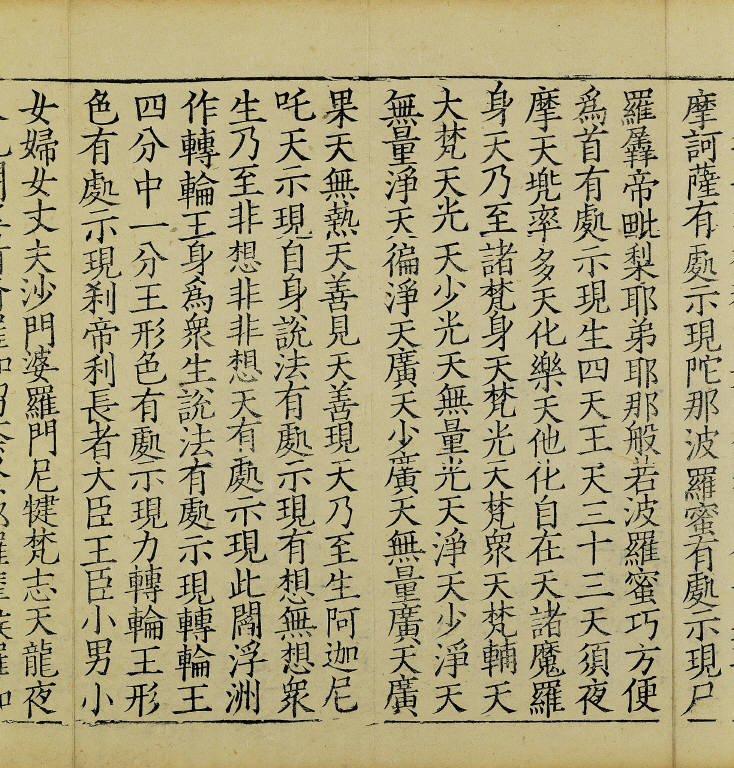 摩訶薩有處示現陀那波羅蜜有處示現尸
羅羼帝毗梨耶弟耶那般若波羅蜜巧方便
爲首有處示現生四天王天三十三天須夜
摩天兠率多天化樂天他化自在天諸魔羅
身天乃至諸梵身天梵光天梵衆天梵輔天
大梵天光天少光天無量光天淨天少淨天
無量淨天徧淨天廣天少廣天無量廣天廣
果天無熱天善見天善現天乃至生阿迦尼
吒天示現自身說法有處示現有想無想衆
生乃至非想非非想天有處示現此閻浮洲
作轉輪王身爲衆生說法有處示現轉輪王
四分中一分王形色有處示現力轉輪王形
色有處示現刹帝利長者大臣王臣小男小
女婦女丈夫沙門婆羅門尼犍梵志天龍夜